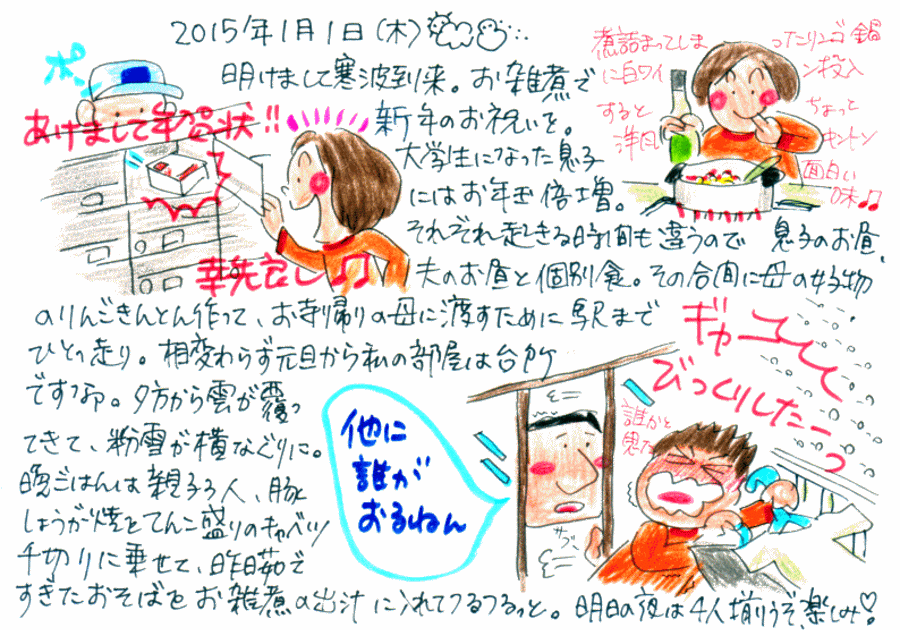 2015年1月1日(木)
明けまして寒波到来。お雑煮で
新年のお祝いを。
大学生になった息子
にはお年玉倍増。
それぞれ起きる時間も違うので 息子のお昼、
夫のお昼と個別食。その合間に母の好物
のりんごきんとん作って、お寺帰りの母に渡すために駅まで
ひとっ走り。相変わらず元旦から私の部屋は台所
ですわ。夕方から雲が覆っ
てきて、粉雪が横なぐりに。
晩ごはんは親子3人、豚
しょうが焼をてんこ盛りのキャベツ
千切りに乗せて、昨日茹で
すぎたおそばをお雑煮の出汁に入れてつるつるっと。明日の夜は4人揃うぞ、楽しみ♡
ポ
あけまして年賀状!!
幸先良し♫
煮詰まってしまったリンゴ鍋
に白ワイン投入
すると ちょっと
洋風 キントン
面白い
味♫
ギャー
びっくりしたーっ
誰かと
思た
他に
誰が
おるねん